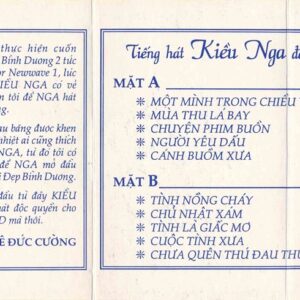 thực hiện cuốn
Bình Dương 2 tức
or Newwave 1, lúc
KIỀU NGA có vẻ
n tôi để NGA hát
ng.
au băng được khen
nhiệt ai cũng thích
NGA, từ đó tôi có
để NGA mở đầu
i Đẹp Bình Dương.
đầu từ đấy KIỀU
hát độc quyền cho
D mà thôi.
Ê ĐỨC CƯỜNG
Tiếng hát Kiều Nga đ
MẶT A
❋ MỘT MÌNH TRONG CHIỀU
❋ MÙA THU LÁ BAY
❋ CHUYỆN PHIM BUỒN
❋ NGƯỜI YÊU DẤU
❋ CÁNH BUỒM XƯA
MẶT B
❋ TÌNH NỒNG CHÁY
❋ CHỦ NHẬT XÁM
❋ TÌNH LÀ GIẤC MƠ
❋ CUỘC TÌNH XƯA
❋ CHƯA QUÊN THÚ ĐAU THƯ